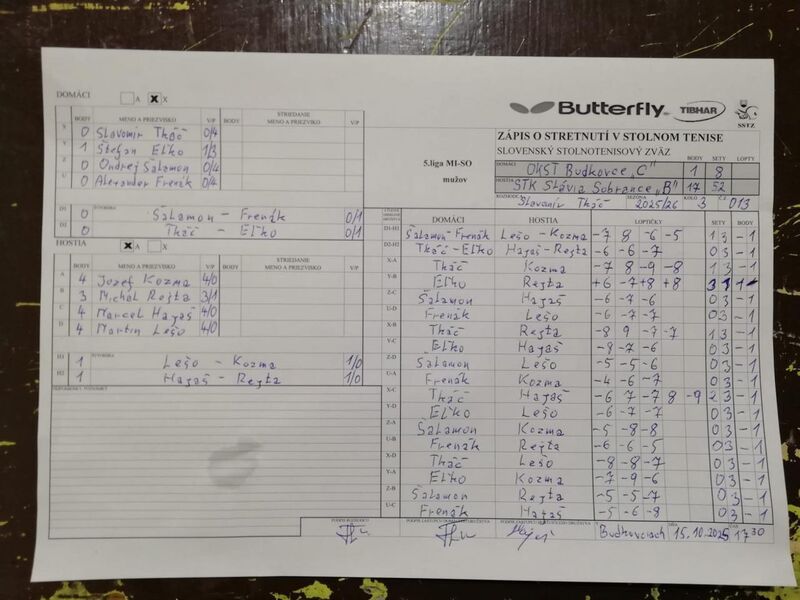 DOMÁCI A X
BODY MENO A PRIEZVISKO V/P BODY STRIEDANIE MENO A PRIEZVISKO V/P
X 0 Slavomír Tkáč 0/4
Y 1 Štefan Eľko 1/3
Z 0 Ondrej Šalamon 0/4
U 0 Alexander Frenák 0/4
D1 0 Šalamon - Frenák 0/1
D2 0 Tkáč - Eľko 0/1
HOSTIA A X
BODY MENO A PRIEZVISKO V/P BODY STRIEDANIE MENO A PRIEZVISKO V/P
A 4 Jozef Kozma 4/0
B 3 Michal Rejta 3/1
C 4 Marcel Hajaš 4/0
D 4 Martin Lešo 4/0
H1 ŠTVORHRA 1 Lešo - Kozma 1/0
H2 1 Hajaš - Rejta 1/0
Butterfly TIBHAR SSTZ
ZÁPIS O STRETNUTÍ V STOLNOM TENISE
SLOVENSKÝ STOLNOTENISOVÝ ZVÄZ BODY SETY LOPTY
5.liga MI-SO
mužov
DOMÁCI OKST Budkovce „C" 1 8
HOSTIA STK Slávia Sobrance „B" 17 52
ROZHODCA Slavomír Tkáč SEZÓNA 2025/26 KOLO 3 Č.Z 013
DOMÁCI HOSTIA LOPTIČKY SETY BODY
D1-H1 Šalamon-Frenák Lešo-Kozma -7 8 -6 -5 1 3 -1
D2-H2 Tkáč-Eľko Hajaš-Rejta -6 -6 -7 0 3 -1
X-A Tkáč Kozma -7 8 -9 -8 1 3 -1
Y-B Eľko Rejta +6 -7 +8 +8 3 1 1-
Z-C Šalamon Hajaš -6 -7 -6 0 3 -1
U-D Frenák Lešo -6 -7 -7 0 3 -1
X-B Tkáč Rejta -8 9 -7 -7 1 3 -1
Y-C Eľko Hajaš -8 -7 -6 0 3 -1
Z-D Šalamon Lešo -5 -5 -6 0 3 -1
U-A Frenák Kozma -4 -6 -7 0 3 -1
X-C Tkáč Hajaš -6 -7 7 8 -9 2 3 -1
Y-D Eľko Lešo -6 -7 -7 0 3 -1
Z-A Šalamon Kozma -5 -8 -8 0 3 -1
U-B Frenák Rejta -6 -6 -5 0 3 -1
X-D Tkáč Lešo -8 -8 -7 0 3 -1
Y-A Eľko Kozma -7 -9 -6 0 3 -1
Z-B Šalamon Rejta -5 -5 -7 0 3 -1
U-C Frenák Hajaš -5 -6 -8 0 3 -1
PODPIS ROZHODCU
V Budkovciach 15.10.2025 17 30